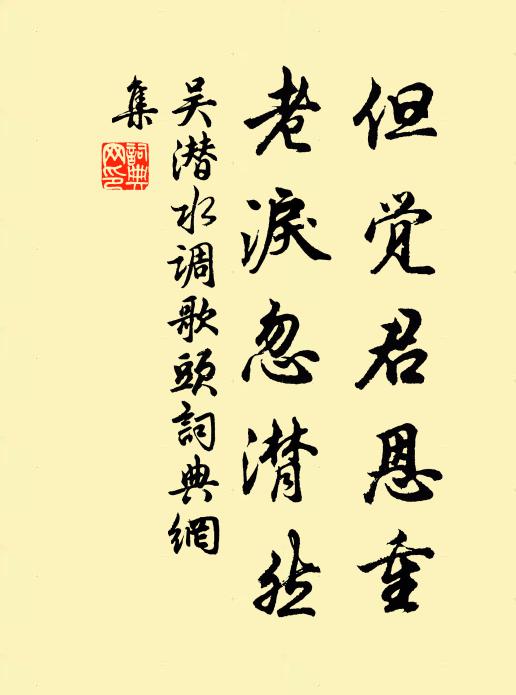 但觉君恩重
老淚忽潸然
吴潜水调歌頭詞典網
集
詞典
网印